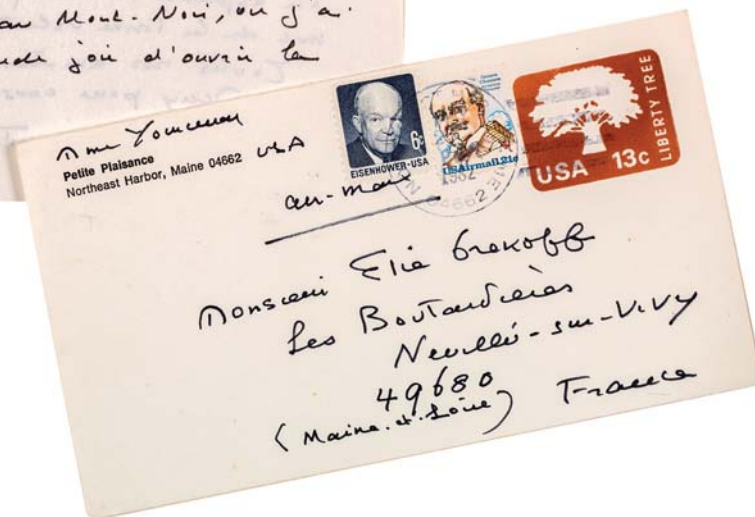 au Mont-Noir, où j'ai
joie d'ouvrir la
Mme Yourcenar
Petite Plaisance
Northeast Harbor, Maine 04662 USA
air-mail
6c
EISENHOWER·USA
USAirmail 21c
1982
04662
USA 13c
LIBERTY TREE
Monsieur Elie Grekoff
Les Boutardières
Neuillé-sur-Vivy
49680
(Maine-et-Loire) France